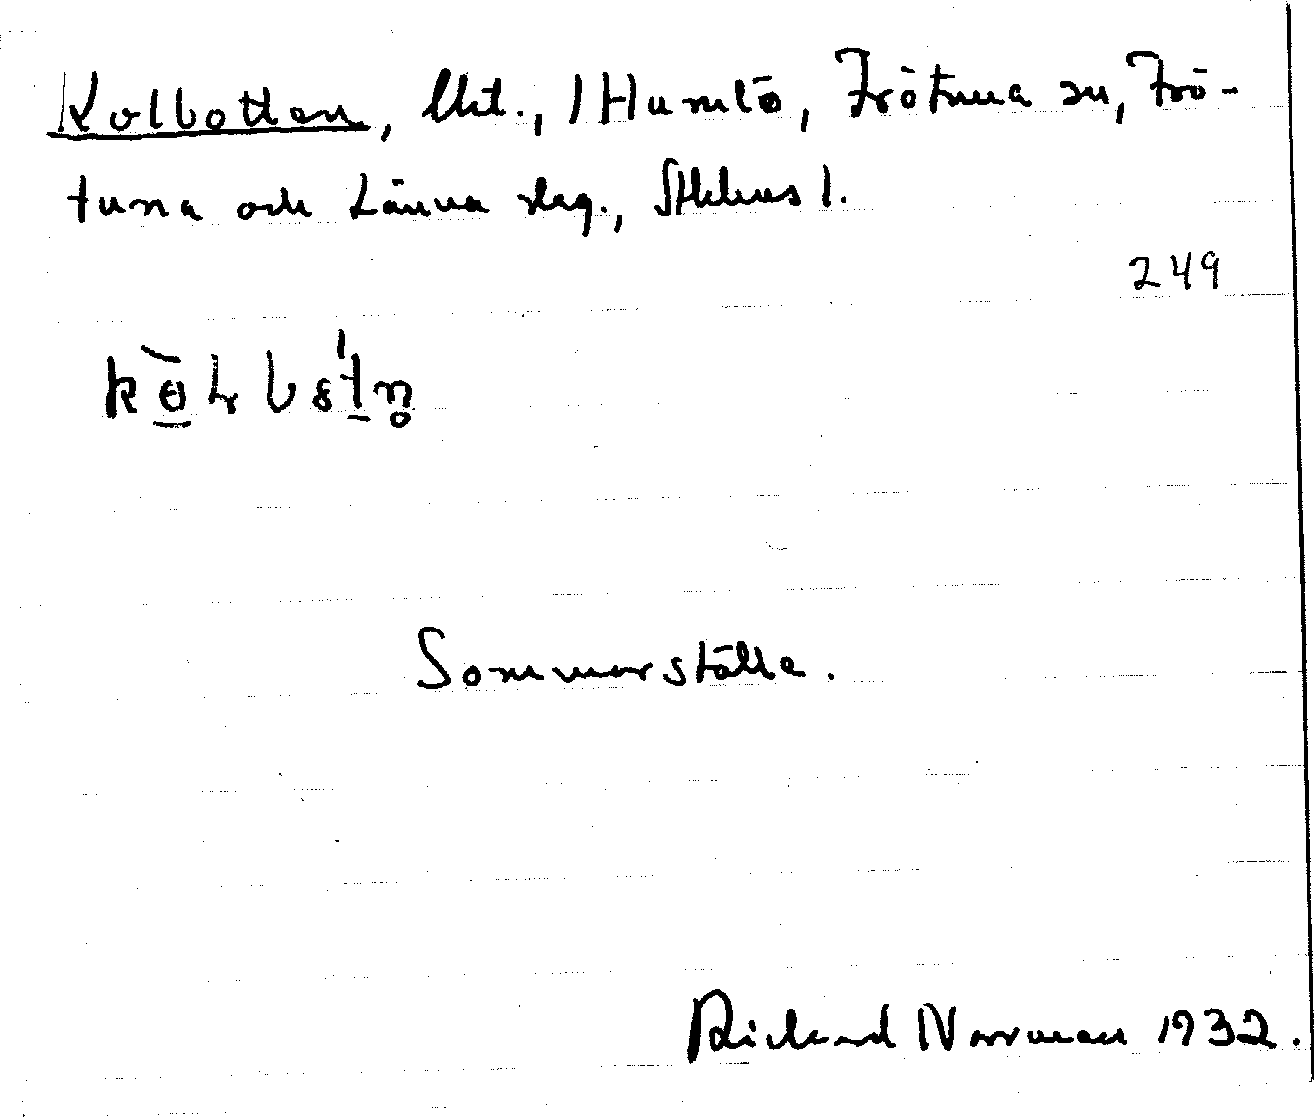 Kolbotten, lht., 1 Humlö, Frötuna sn, Frö-
tuna och Länna slag., Sthlms l.
249
Sommarställe.
Rickard Norrman 1932.